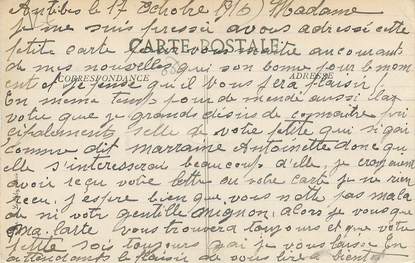 Antibes le 17 Octobre 1915) Madame
je me suis pressée à vous adressé cette
petite carte pour vous mettre au courants
CARTE POSTALE
de mes nouvelles qui son bonne pour le mom
CORRESPONDANCE
ADRESSE
ent et je pense qu'il vous fera plaisir
En meme temps pour de mendé aussi las
votre que je grands désirs de conaitre prin
cipalements selle de votre petite qui si gai
comme dit marraine Antoinette donc qu
elle s'interesserai beaucoup d'elle, je croyais
avoir reçu votre lettre ou votre carte je ne rien
reçu. j'espère bien que vous n'ette pas mala
de ni votre gentille mignon, alors je vous que
ma carte vous trouvera toujours et que votre
petite sois toujours gai je vous laisse En
attendants le plaisir de vous lire a bientot